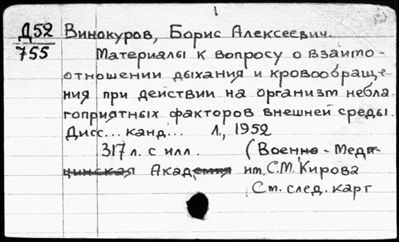 1
Д52 Винокуров, Борис Алексеевич.
755 Материалы к вопросу о взаимо-
отношении дыхания и кровообраще-
ния при действии на организм небла-
гоприятных факторов внешней среды.
Дисс... канд... Л., 1952
317 л. с илл. (Военно-Меди-
цинская Академия им. С.М. Кирова
См. след. карт